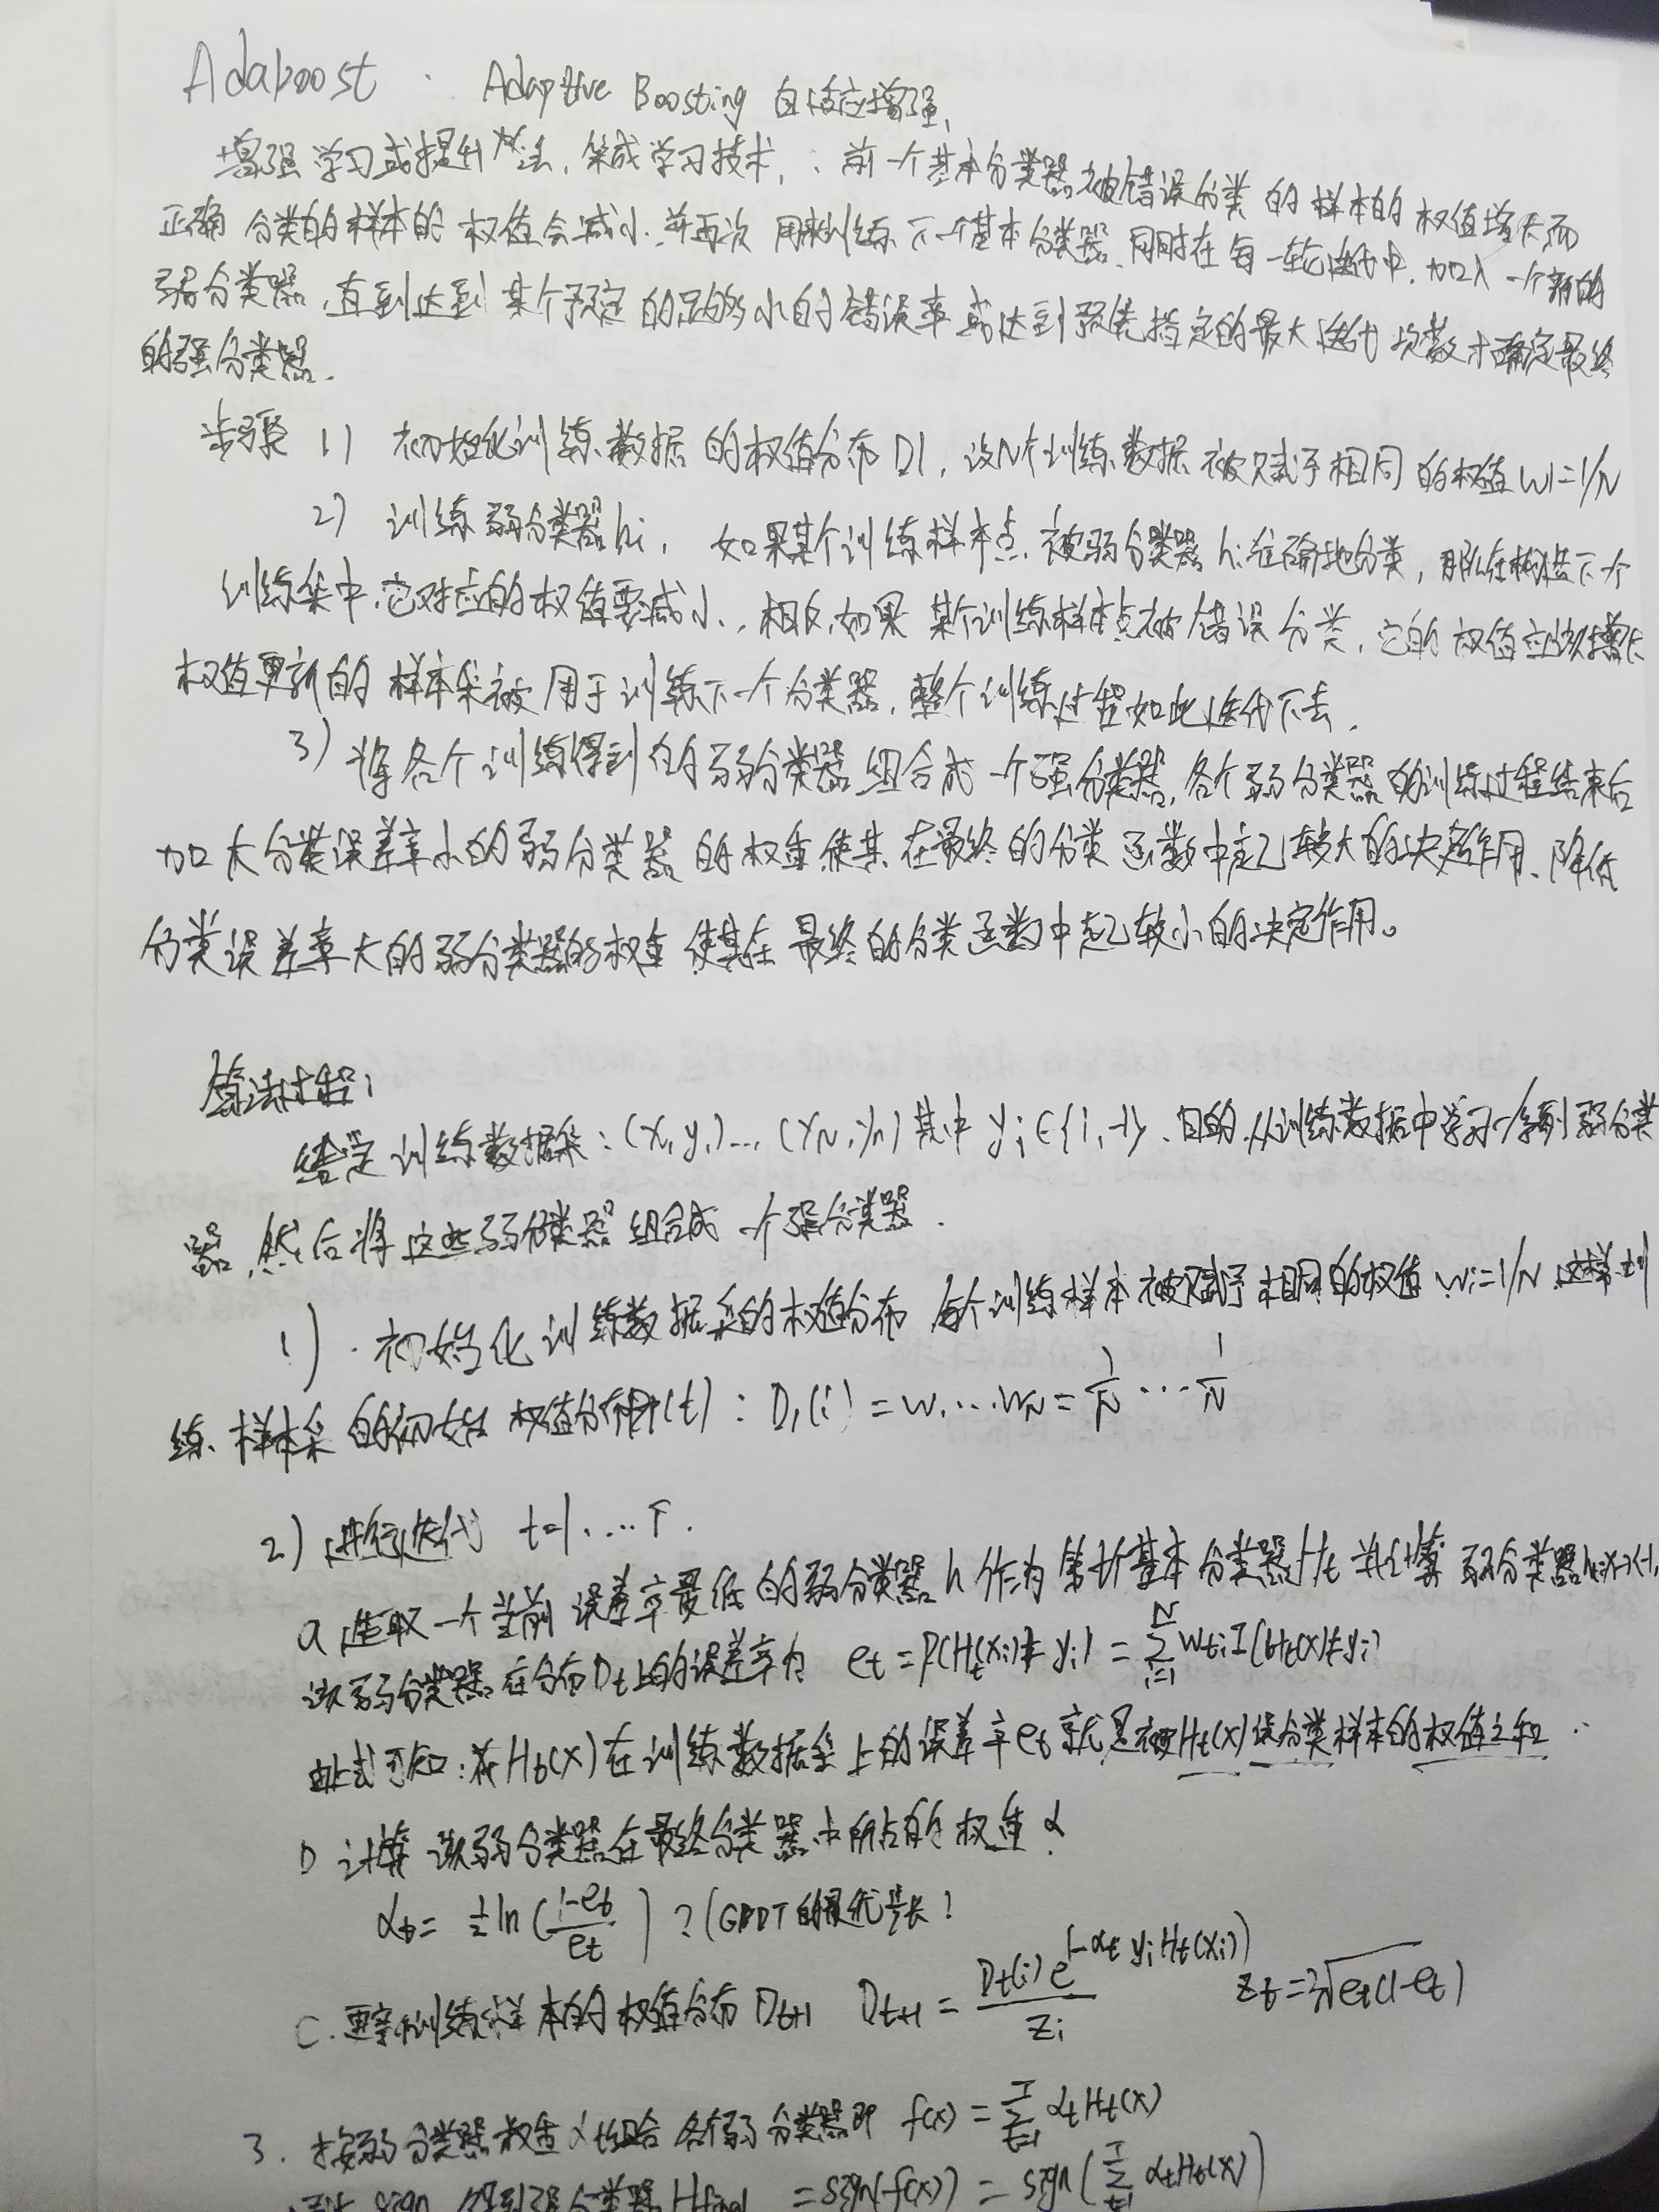 Adaboost . Adaptive Boosting 自适应增强、
增强学习或提升算法,集成学习技术,: 前一个基本分类器被错误分类的样本的权值增大而
正确分类的样本的权值会减小.并再次用来训练下一个基本分类器.同时在每一轮迭代中.加入一个新的
弱分类器,直到达到某个预定的足够小的错误率或达到预先指定的最大迭代次数才确定最终
的强分类器.
步骤 1) 初始化训练数据的权值分布D1,设N个训练数据被赋予相同的权值w1=1/N
2) 训练弱分类器hi, 如果某个训练样本点.被弱分类器hi准确地分类,那么在构造下一个
训练集中.它对应的权值要减小.,相反,如果某个训练样本点被错误分类,它的权值应该增大
权值更新的样本集被用于训练下一个分类器,整个训练过程如此迭代下去.
3) 将各个训练得到的弱分类器组合成一个强分类器,各个弱分类器的训练过程结束后
加大分类误差率小的弱分类器的权重使其在最终的分类函数中起较大的决定作用、降低
分类误差率大的弱分类器的权重使其在最终的分类函数中起较小的决定作用。
算法过程:
给定训练数据集:(x1 y1)...(xN,yn)其中yi∈{1,-1}.目的.从训练数据中学习一系列弱分类
器,然后将这些弱分类器组合成一个强分类器.
1) . 初始化训练数据集的权值分布 每个训练样本被赋予相同的权值wi=1/N 这样训
练、样本集的初始权值分布(t): D1(i)=w1...wN=1/N...1/N
2)进行迭代 t=1....T.
a 选取一个当前误差率最低的弱分类器h作为第t个基本分类器Ht 并计算弱分类器
该弱分类器在分布Dt上的误差率为 et=P(Ht(xi)≠yi)=∑(i=1..N) wtiI(Ht(xi)≠yi)
由上式可知:在Ht(x)在训练数据集上的误差率et就是被Ht(x)误分类样本的权值之和
D 计算该弱分类器在最终分类器中所占的权重α
αt= 1/2 ln((1-et)/et) ?(GBDT的最优步长?
C. 更新训练样本的权值分布Dt+1 Dt+1=Dt(i)e^(-αt yiHt(xi))/Zi Zt=2√et(1-et)
3. 按弱分类器权重αt组合各个弱分类器即 f(x)=∑(t=1..T) αtHt(x)
sign 得到强分类器Hfinal=sign(f(x))=sign(∑(t=1..T) αtHt(x))